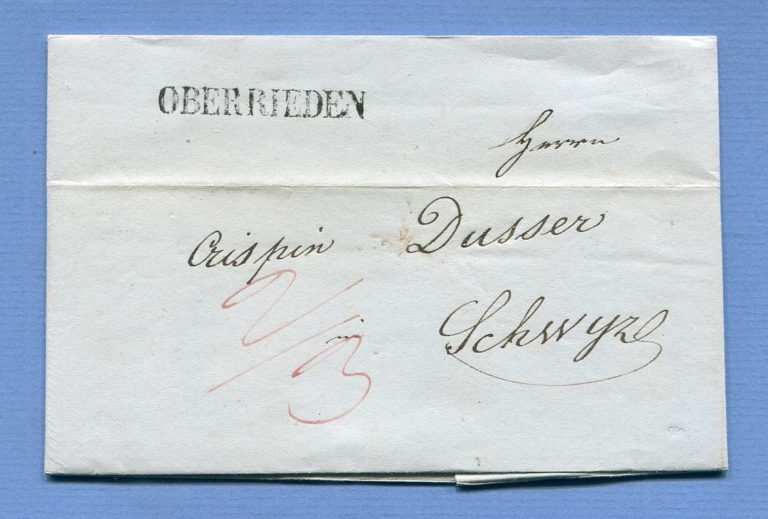 OBERRIEDEN
Herrn
Crispin Dusser
in Schwyz
2/3